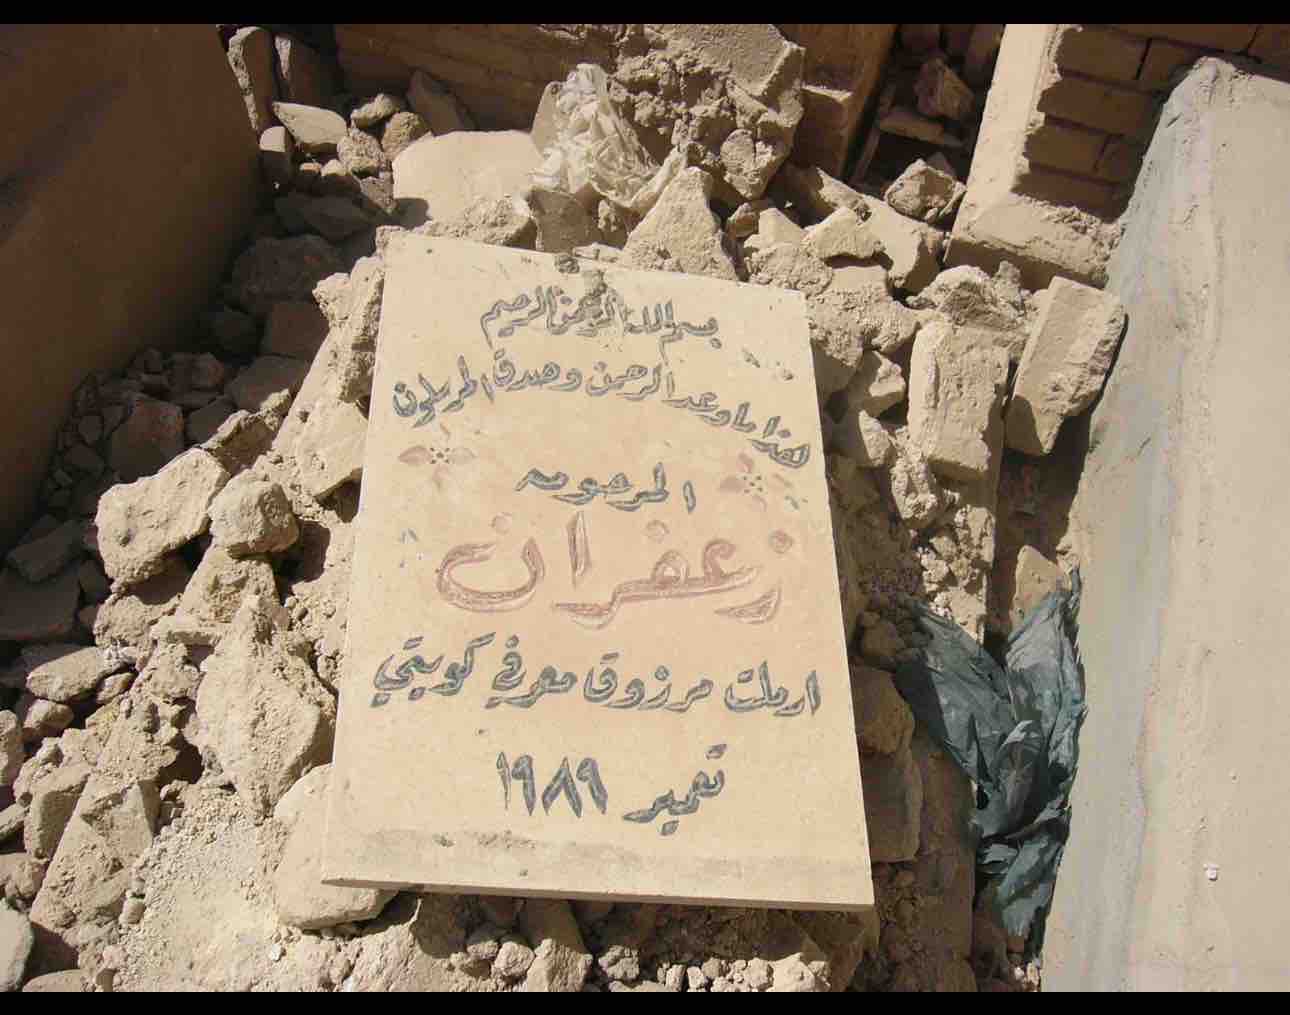 بسم الله الرحمن الرحيم
هذا ما وعد الرحمن وصدق المرسلون
المرحومه
زعفران
ارملت مرزوق معرفي كويتي
تعمير ١٩٨٩